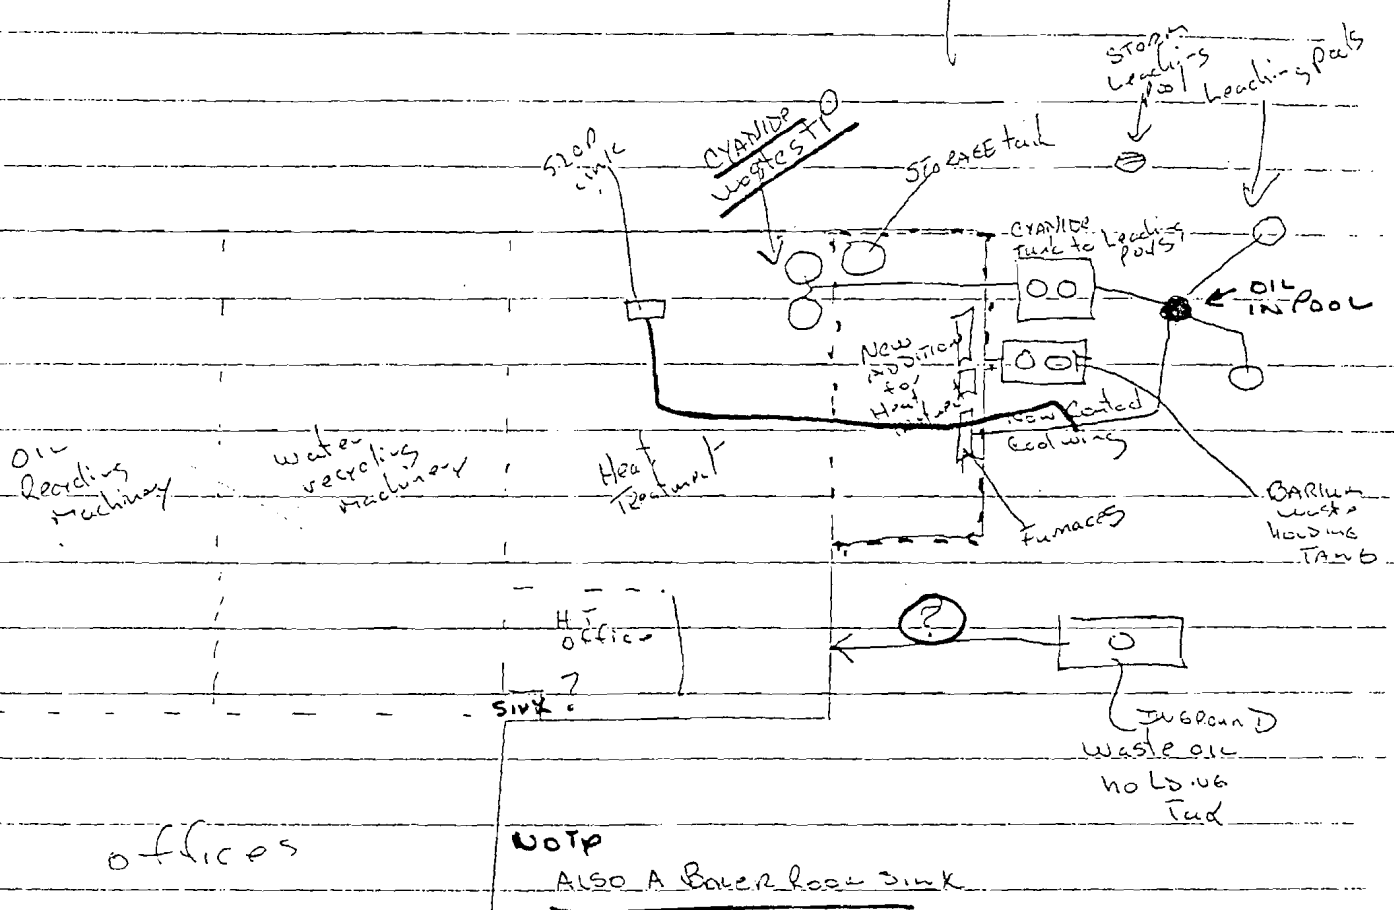 STORM
Leaching
Pool
Leaching Pools
SLOP
Sink
CYANIDE
wastes TP
STORAGE tank
CYANIDE
Tank to Leaching
Pools
OIL
IN POOL
New
ADDITION
for
Heat
Treatment
Non Contact
Cool wing
OIL
Recycling
Machinery
water
recycling
machinery
Heat
Treatment
BARIUM
waste
HOLDING
TANK
Furnaces
?
H T
office
?
SINK
INGROUND
waste OIL
HOLDING
Tank
offices
NOTE
ALSO A BOILER ROOM SINK